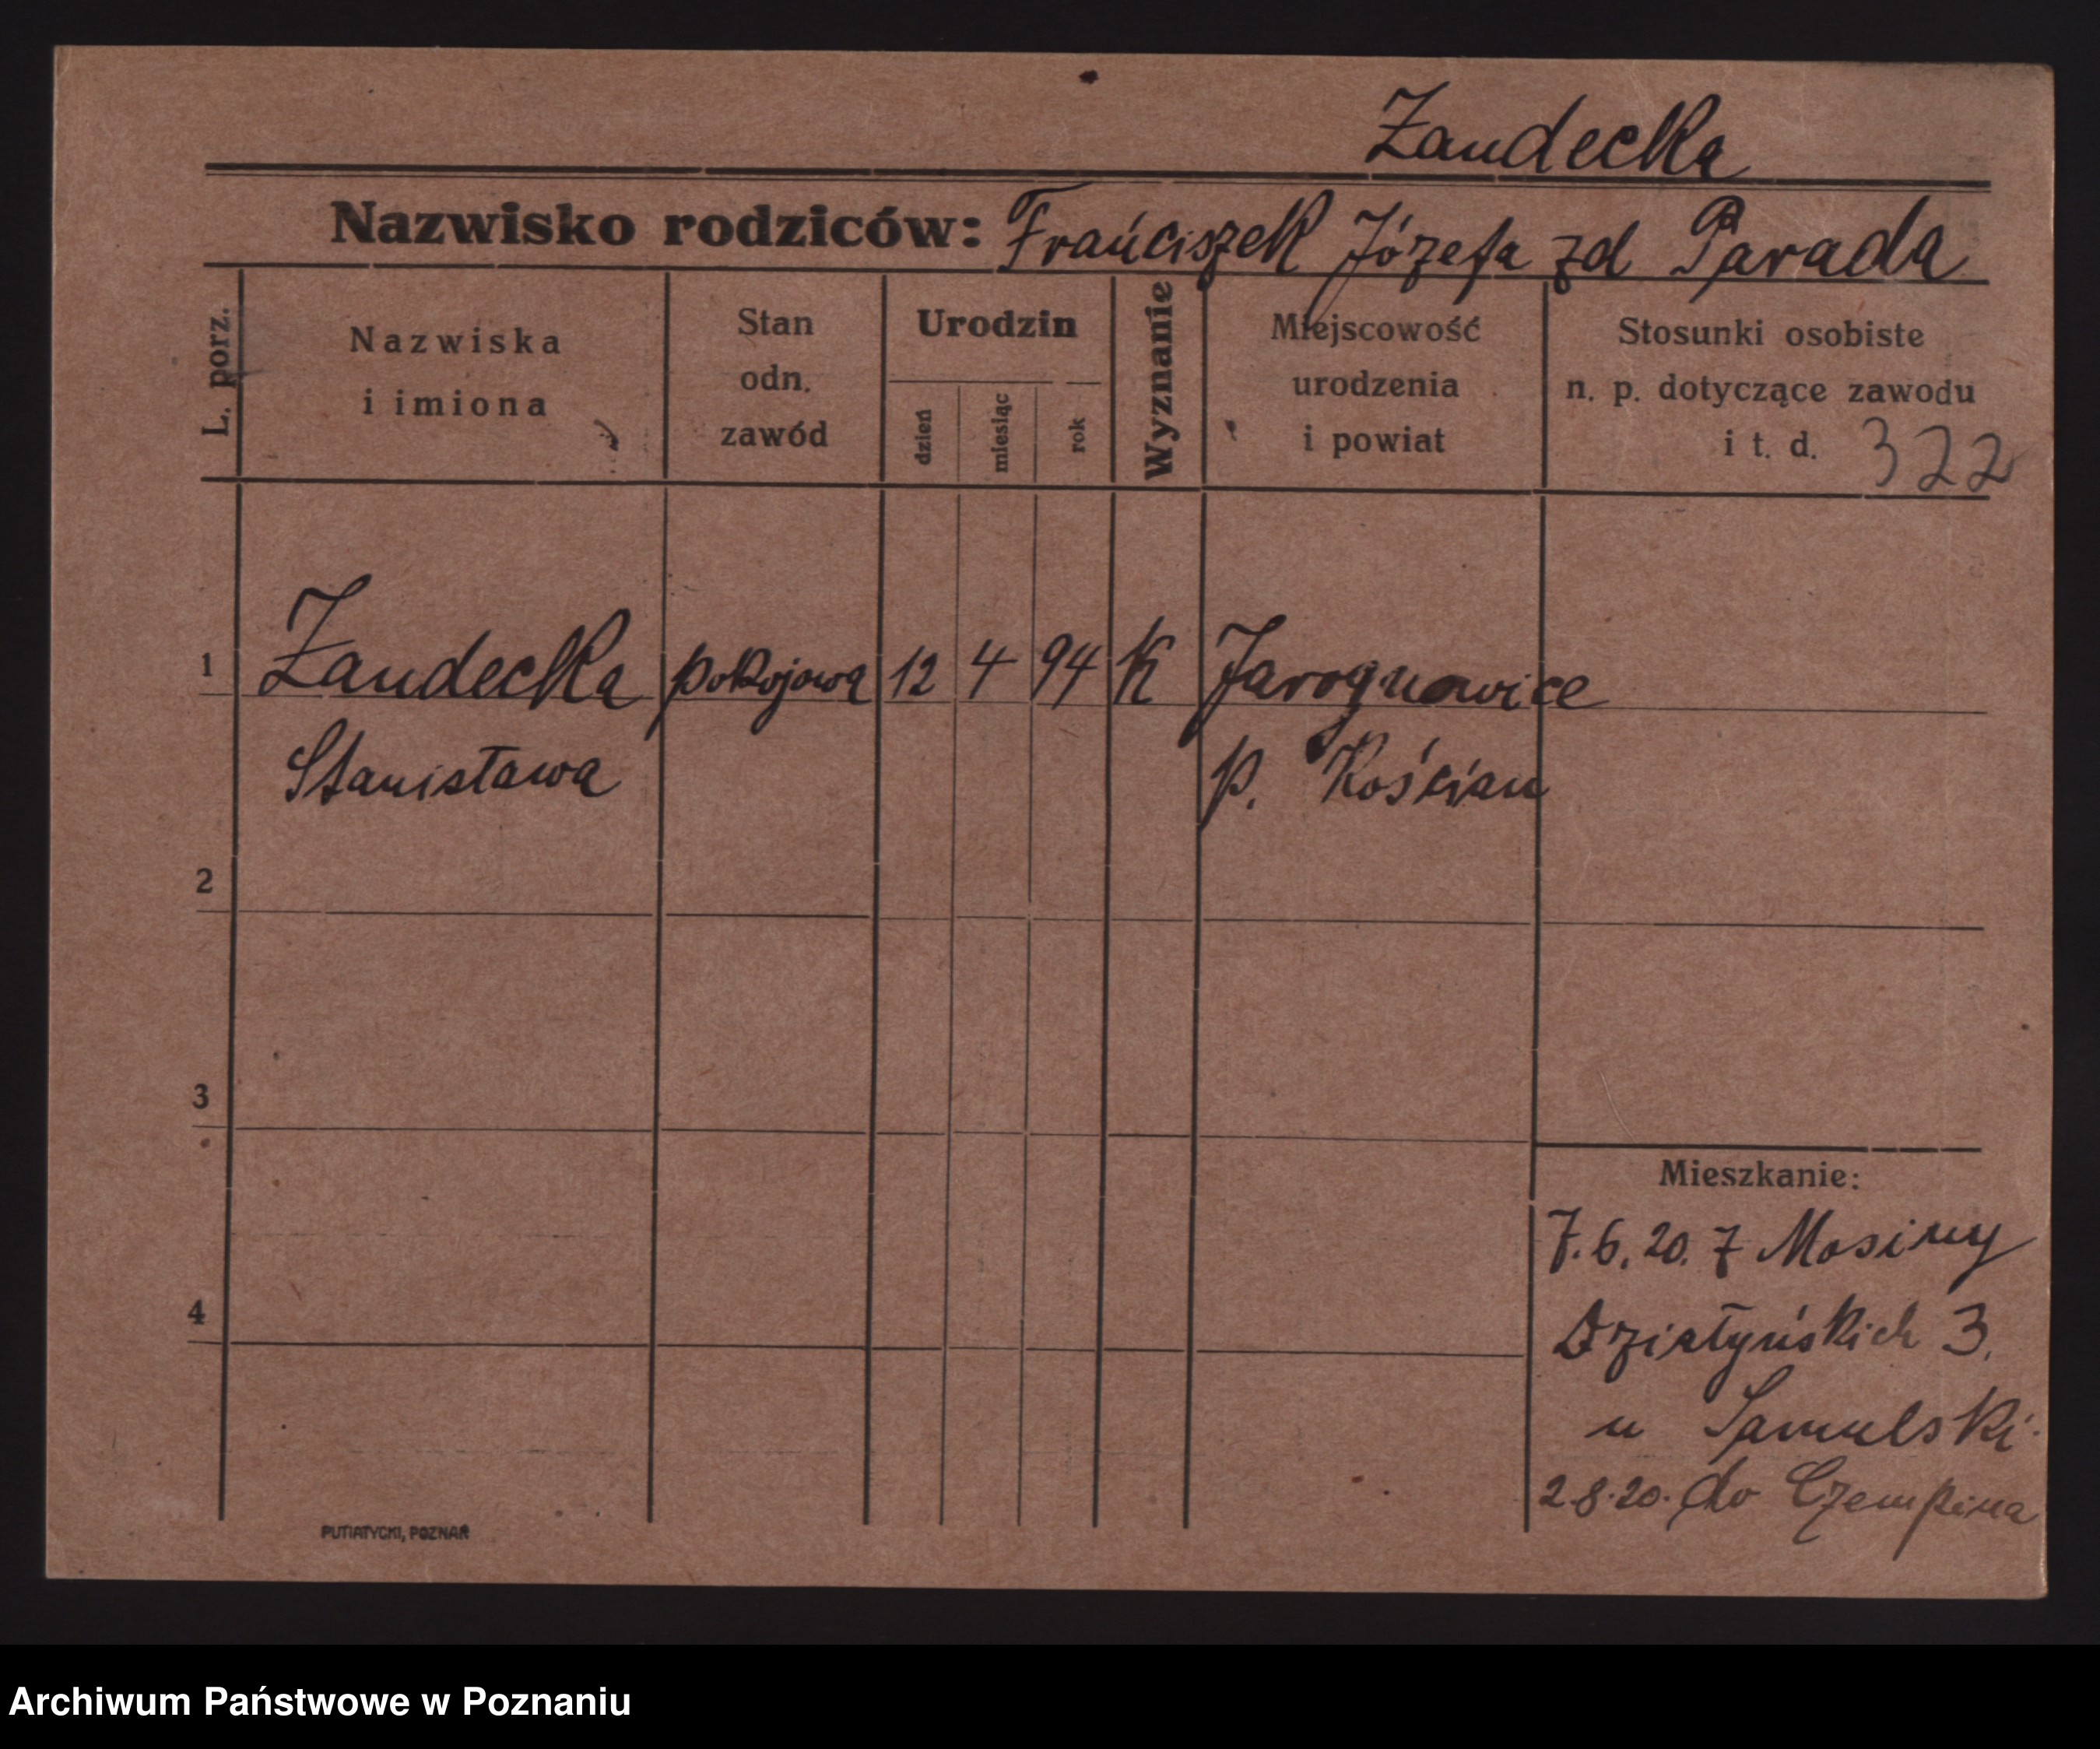 Zandecka
Nazwisko rodziców: Frańciszek Józefa zd Parada
L. porz.
Nazwiska
i imiona
Stan
odn.
zawód
Urodzin
dzień
miesiąc
rok
Wyznanie
Miejscowość
urodzenia
i powiat
Stosunki osobiste
n. p. dotyczące zawodu
i t. d. 322
1 Zandecka pokojowa 12 4 94 K Jarognowice
Stanisława p. Kościan
2
3
4
Mieszkanie:
7.6.20. z Mosiny
Działyńskich 3.
u Samulski.
2.8.20. do Czempina
PUTIATYCKI, POZNAŃ
Archiwum Państwowe w Poznaniu